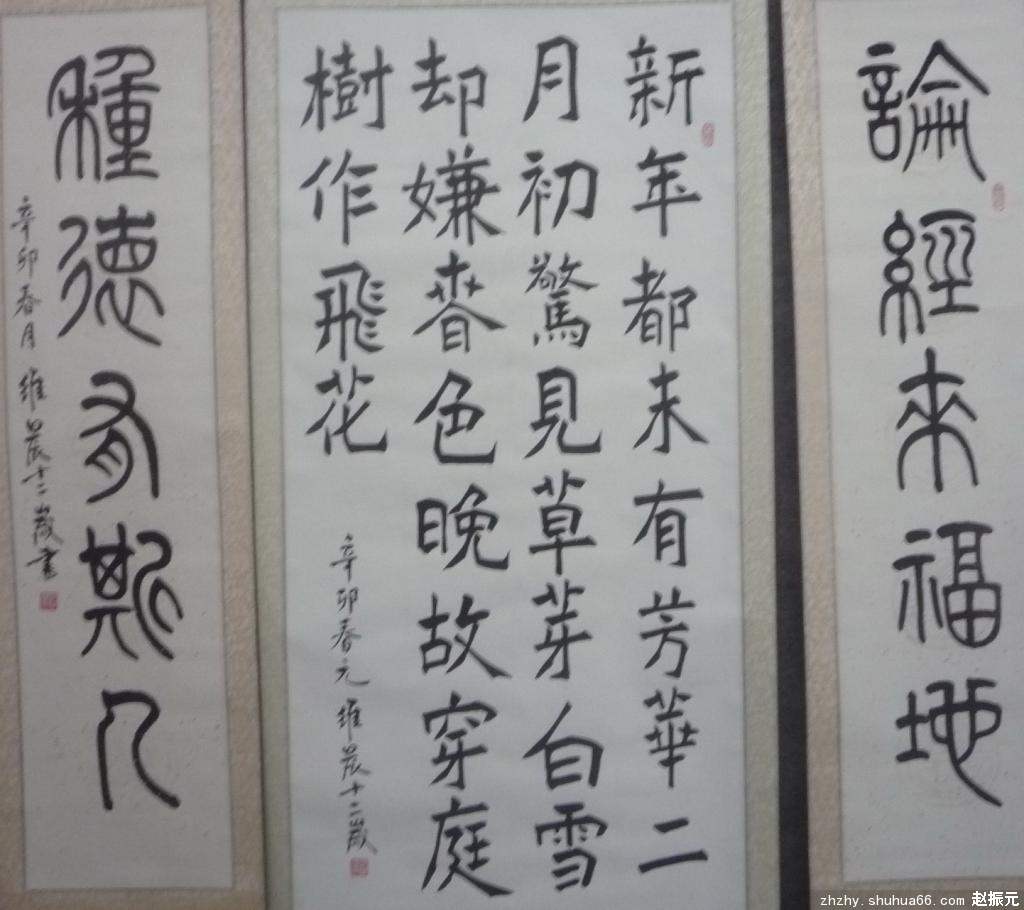 論經來福地
新年都未有芳華二
月初驚見草芽白雪
却嫌春色晚故穿庭
樹作飛花
辛卯春元 維晨十二歲
種德有斯人
辛卯春月 維晨十二歲書
zhzhy.shuhua66.com 赵振元